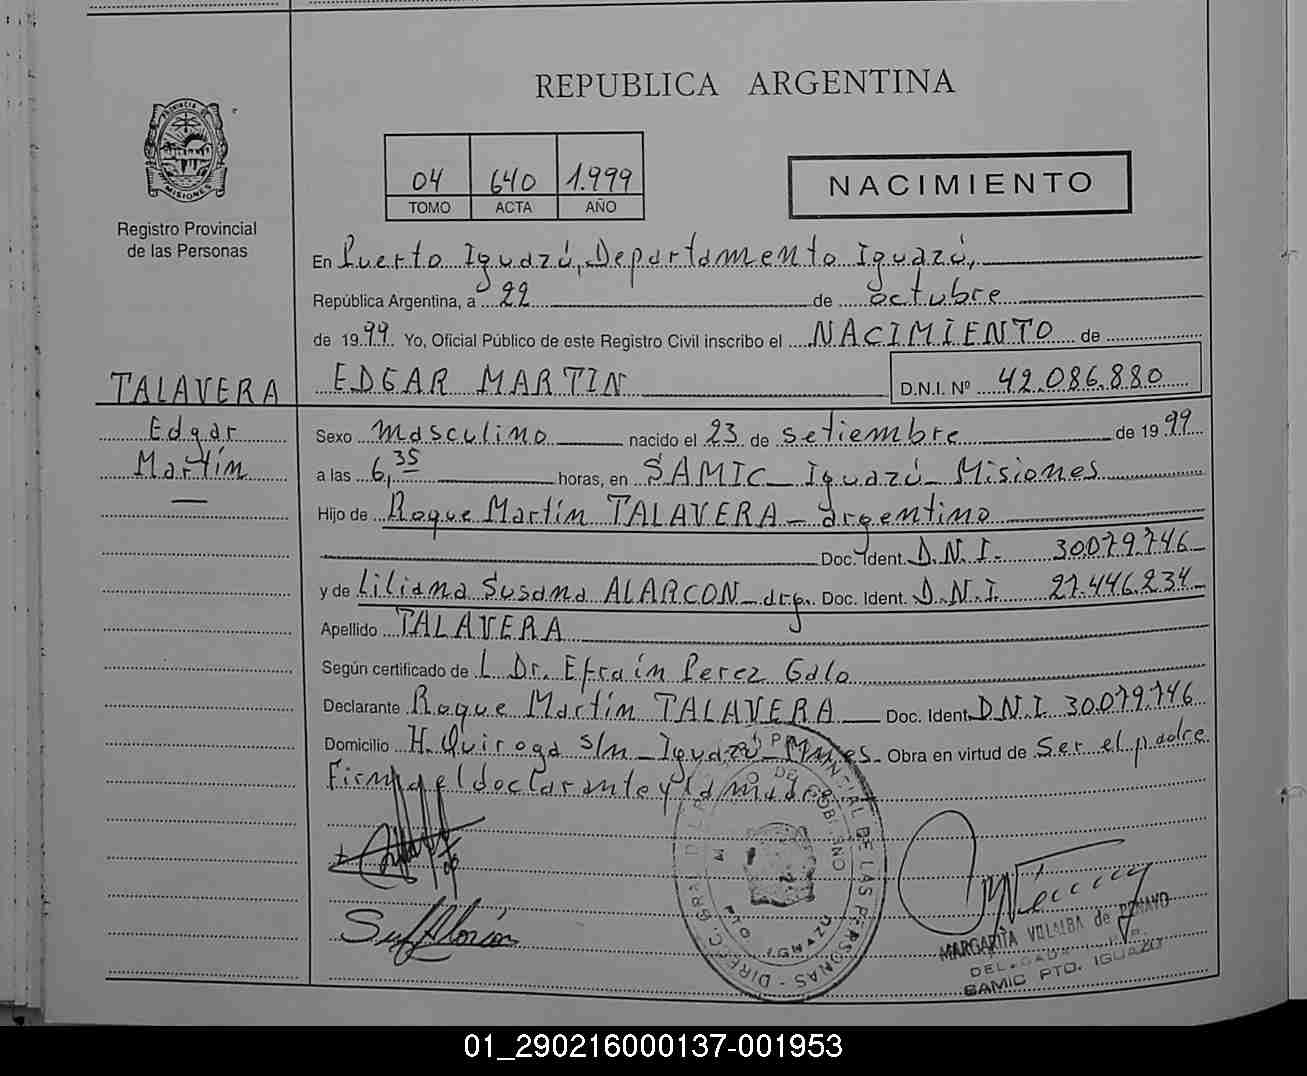 REPUBLICA ARGENTINA
PROVINCIA DE
MISIONES
Registro Provincial
de las Personas
04 640 1.999
TOMO ACTA AÑO
NACIMIENTO
En Puerto Iguazú, Departamento Iguazú,
República Argentina, a 22 de octubre
de 1999 Yo, Oficial Público de este Registro Civil inscribo el NACIMIENTO de
TALAVERA
EDGAR MARTIN
D.N.I. Nº 42.086.880
Edgar
Martín
Sexo masculino nacido el 23 de setiembre de 1999
a las 6,35 horas, en SAMIC_ Iguazú_ Misiones
Hijo de Roque Martín TALAVERA_ argentino
Doc. Ident. D.N.I. 30.079.746
y de Liliana Susana ALARCON_arg. Doc. Ident. D.N.I. 27.446.234
Apellido TALAVERA
Según certificado de L Dr. Efraín Perez Galo
Declarante Roque Martín TALAVERA Doc. Ident. D.N.I. 30.079.746
Domicilio H. Quiroga s/n_Iguazú_Mnes. Obra en virtud de Ser el padre
Firma el declarante y la madre
DE LAS PERSONAS - DIREC. GRAL
MARGARITA VILLALBA de
SAMIC PTO. IGUAZU
01_290216000137-001953